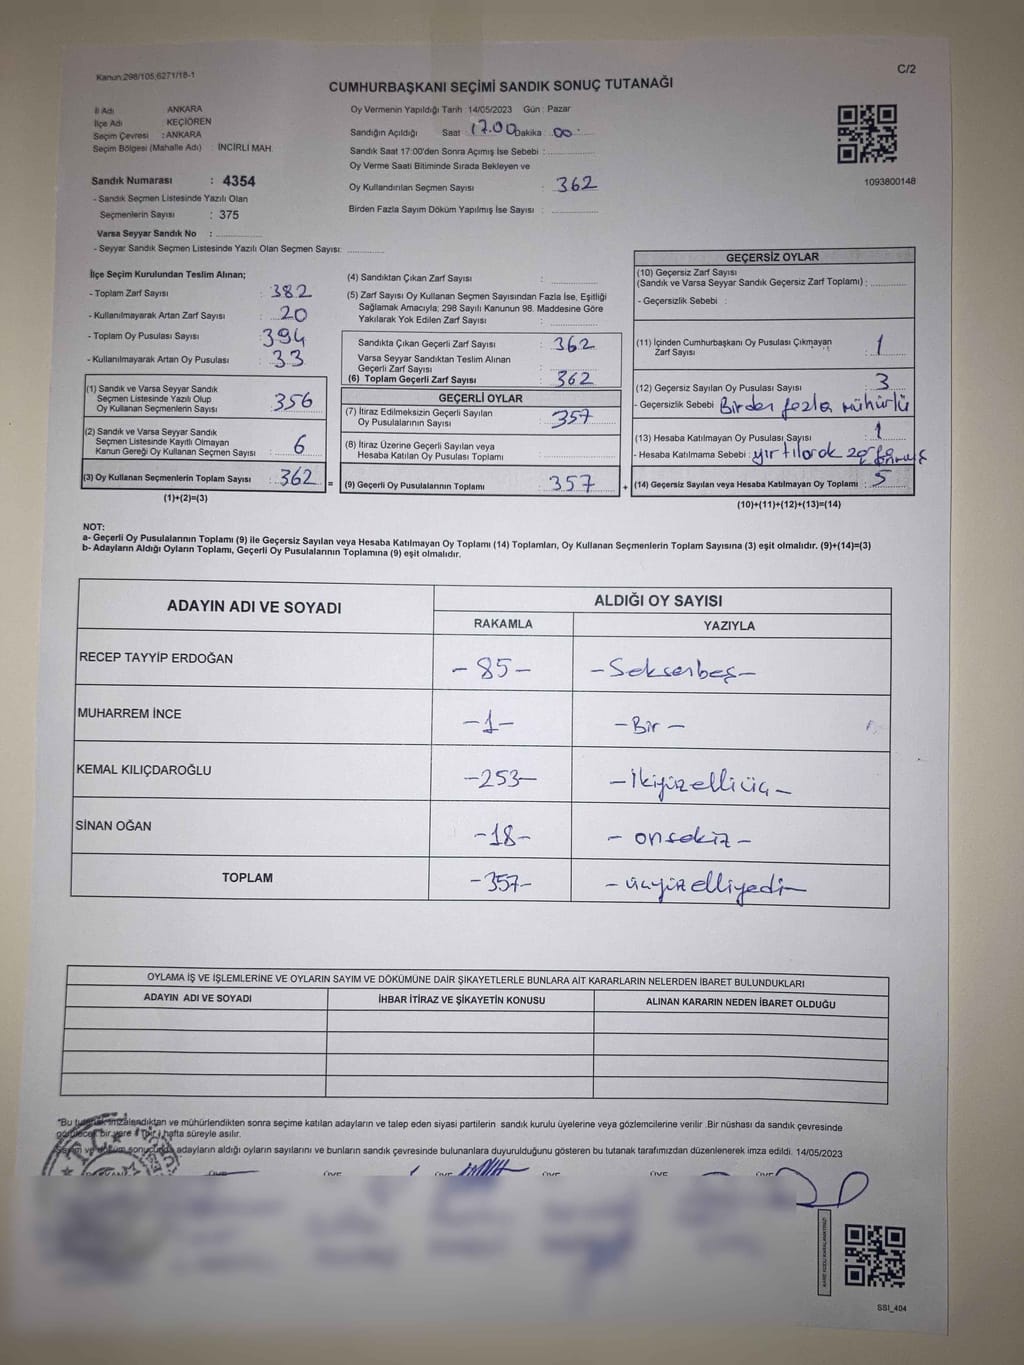 Kanun:298/105,6271/18-1
C/2
CUMHURBAŞKANI SEÇİMİ SANDIK SONUÇ TUTANAĞI
İl Adı ANKARA
İlçe Adı KEÇİÖREN
Seçim Çevresi : ANKARA
Seçim Bölgesi (Mahalle Adı) : İNCİRLİ MAH.
Sandık Numarası : 4354
- Sandık Seçmen Listesinde Yazılı Olan
Seçmenlerin Sayısı : 375
Varsa Seyyar Sandık No :
- Seyyar Sandık Seçmen Listesinde Yazılı Olan Seçmen Sayısı:
Oy Vermenin Yapıldığı Tarih : 14/05/2023 Gün : Pazar
Sandığın Açıldığı Saat : 17.00 Dakika : 00
Sandık Saat 17:00'den Sonra Açımış İse Sebebi :
Oy Verme Saati Bitiminde Sırada Bekleyen ve
Oy Kullandırılan Seçmen Sayısı : 362
Birden Fazla Sayım Döküm Yapılmış İse Sayısı :
1093800148
İlçe Seçim Kurulundan Teslim Alınan;
- Toplam Zarf Sayısı : 382
- Kullanılmayarak Artan Zarf Sayısı : 20
- Toplam Oy Pusulası Sayısı : 394
- Kullanılmayarak Artan Oy Pusulası : 33
(1) Sandık ve Varsa Seyyar Sandık
Seçmen Listesinde Yazılı Olup
Oy Kullanan Seçmenlerin Sayısı : 356
(2) Sandık ve Varsa Seyyar Sandık
Seçmen Listesinde Kayıtlı Olmayan
Kanun Gereği Oy Kullanan Seçmen Sayısı : 6
(3) Oy Kullanan Seçmenlerin Toplam Sayısı : 362 =
(1)+(2)=(3)
(4) Sandıktan Çıkan Zarf Sayısı :
(5) Zarf Sayısı Oy Kullanan Seçmen Sayısından Fazla İse, Eşitliği
Sağlamak Amacıyla; 298 Sayılı Kanunun 98. Maddesine Göre
Yakılarak Yok Edilen Zarf Sayısı :
Sandıkta Çıkan Geçerli Zarf Sayısı : 362
Varsa Seyyar Sandıktan Teslim Alınan
Geçerli Zarf Sayısı :
(6) Toplam Geçerli Zarf Sayısı : 362
GEÇERLİ OYLAR
(7) İtiraz Edilmeksizin Geçerli Sayılan
Oy Pusulalarının Sayısı : 357
(8) İtiraz Üzerine Geçerli Sayılan veya
Hesaba Katılan Oy Pusulası Toplamı :
(9) Geçerli Oy Pusulalarının Toplamı : 357 +
GEÇERSİZ OYLAR
(10) Geçersiz Zarf Sayısı
(Sandık ve Varsa Seyyar Sandık Geçersiz Zarf Toplamı) :
- Geçersizlik Sebebi :
(11) İçinden Cumhurbaşkanı Oy Pusulası Çıkmayan
Zarf Sayısı : 1
(12) Geçersiz Sayılan Oy Pusulası Sayısı : 3
- Geçersizlik Sebebi : Birden fazla mühürlü
(13) Hesaba Katılmayan Oy Pusulası Sayısı : 1
- Hesaba Katılmama Sebebi : yırtılarak
(14) Geçersiz Sayılan veya Hesaba Katılmayan Oy Toplamı : 5
(10)+(11)+(12)+(13)=(14)
NOT:
a- Geçerli Oy Pusulalarının Toplamı (9) ile Geçersiz Sayılan veya Hesaba Katılmayan Oy Toplamı (14) Toplamları, Oy Kullanan Seçmenlerin Toplam Sayısına (3) eşit olmalıdır. (9)+(14)=(3)
b- Adayların Aldığı Oyların Toplamı, Geçerli Oy Pusulalarının Toplamına (9) eşit olmalıdır.
ADAYIN ADI VE SOYADI
ALDIĞI OY SAYISI
RAKAMLA YAZIYLA
RECEP TAYYİP ERDOĞAN -85- -Seksenbeş-
MUHARREM İNCE -1- -Bir-
KEMAL KILIÇDAROĞLU -253- -İkiyüzelliüç-
SİNAN OĞAN -18- -onsekiz-
TOPLAM -357- -üçyüzelliyedi-
OYLAMA İŞ VE İŞLEMLERİNE VE OYLARIN SAYIM VE DÖKÜMÜNE DAİR ŞİKAYETLERLE BUNLARA AİT KARARLARIN NELERDEN İBARET BULUNDUKLARI
ADAYIN ADI VE SOYADI İHBAR İTİRAZ VE ŞİKAYETİN KONUSU ALINAN KARARIN NEDEN İBARET OLDUĞU
"Bu tutanak imzalandıktan ve mühürlendikten sonra seçime katılan adayların ve talep eden siyasi partilerin sandık kurulu üyelerine veya gözlemcilerine verilir .Bir nüshası da sandık çevresinde
görülecek bir yere 1 (bir) hafta süreyle asılır.
Sayım ve döküm sonucunda adayların aldığı oyların sayılarını ve bunların sandık çevresinde bulunanlara duyurulduğunu gösteren bu tutanak tarafımızdan düzenlenerek imza edildi. 14/05/2023
SSI_404